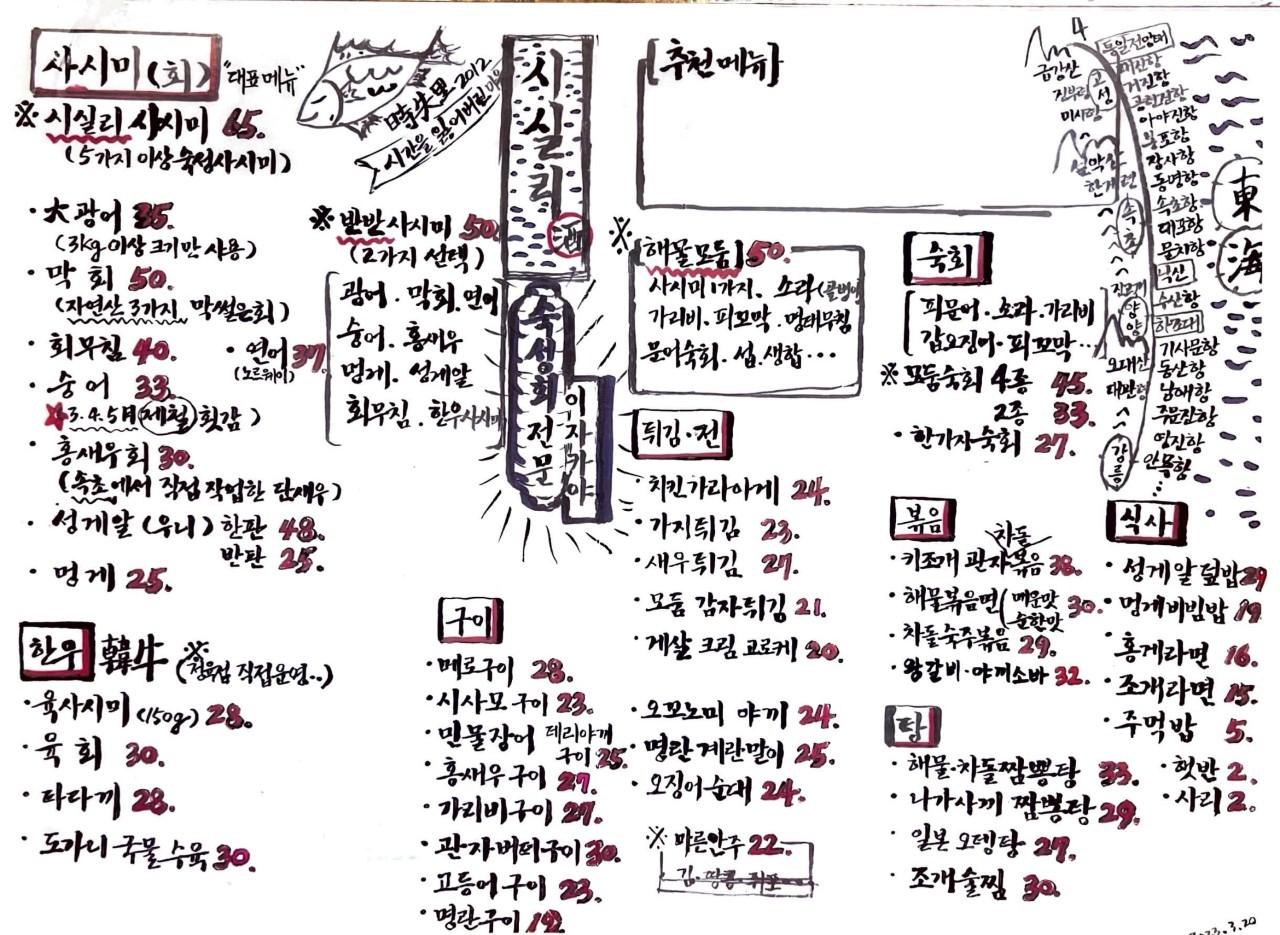 사시미(회) "대표메뉴"
※ 시실리 사시미 65.
(5가지 이상 숙성사시미)
· 大광어 35.
(3kg 이상 크기만 사용)
· 막회 50.
(자연산 3가지 막썰은회)
· 회무침 40.
· 연어 37.
(노르웨이)
· 숭어 33.
3.4.5月 제철 횟감)
· 홍새우회 30.
(속초에서 직접 작업한 단새우)
· 성게알 (우니) 한판 48.
반판 25.
· 멍게 25.
한우 韓牛 (※정육점 직접운영..)
· 육사시미(150g) 28.
· 육회 30.
· 타다끼 28.
· 도가니 국물 수육 30.
時失里 2012
시간을 잃어버린 마을
※ 반반 사시미 50.
(2가지 선택)
광어. 막회. 연어
숭어. 홍새우
멍게. 성게알
회무침. 한우사시미
시실리
酒
숙성회 전문
이자가야
구이
· 메로구이 28.
· 시사모구이 23.
· 민물장어 데리야끼
구이 25.
· 홍새우구이 27.
· 가리비구이 27.
· 관자버터구이 30.
· 고등어구이 23.
· 명란구이
[추천메뉴]
※ 해물모둠 50.
사시미 1가지. 소라(골뱅이)
가리비. 피꼬막. 멍태무침
문어숙회. 섭. 생합...
튀김·전
· 치킨가라아게 24.
· 가지튀김 23.
· 새우튀김 27.
· 모둠 감자튀김 21.
· 게살 크림 고로케 20.
· 오꼬노미 야끼 24.
· 명란 계란말이 25.
· 오징어순대 24.
※ 마른안주 22.
김. 땅콩. 쥐포
숙회
피문어. 소라. 가리비
갑오징어. 피꼬막...
※ 모둠숙회 4종 45.
2종 33.
· 한가지숙회 27.
볶음
· 키조개 관자 차돌 볶음 38.
· 해물볶음면 (매운맛 30.
순한맛
· 차돌숙주볶음 29.
· 왕갈비·야끼소바 32.
탕
· 해물·차돌짬뽕탕 33.
· 나가사끼 짬뽕탕 29.
· 일본 오뎅탕 27.
· 조개술찜 30.
식사
· 성게알 덮밥 29
· 멍게비빔밥 19
· 홍게라면 16.
· 조개라면 15.
· 주먹밥 5.
· 햇반 2.
· 사리 2.
4
금강산
진부령
미시령
설악산
한계령
오대산
대관령
고성
속초
양양
강릉
통일전망대
거진항
공현진항
아야진항
봉포항
장사항
동명항
속초항
대포항
물치항
낙산
수산항
하조대
기사문항
동산항
남애항
주문진항
영진항
안목항
東海
2023.3.20